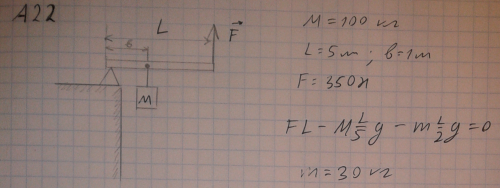 A22
L
в
F
M
M = 100 кг
L = 5м ; в = 1м
F = 350Н
FL - M L/5 g - m L/2 g = 0
m = 30 кг